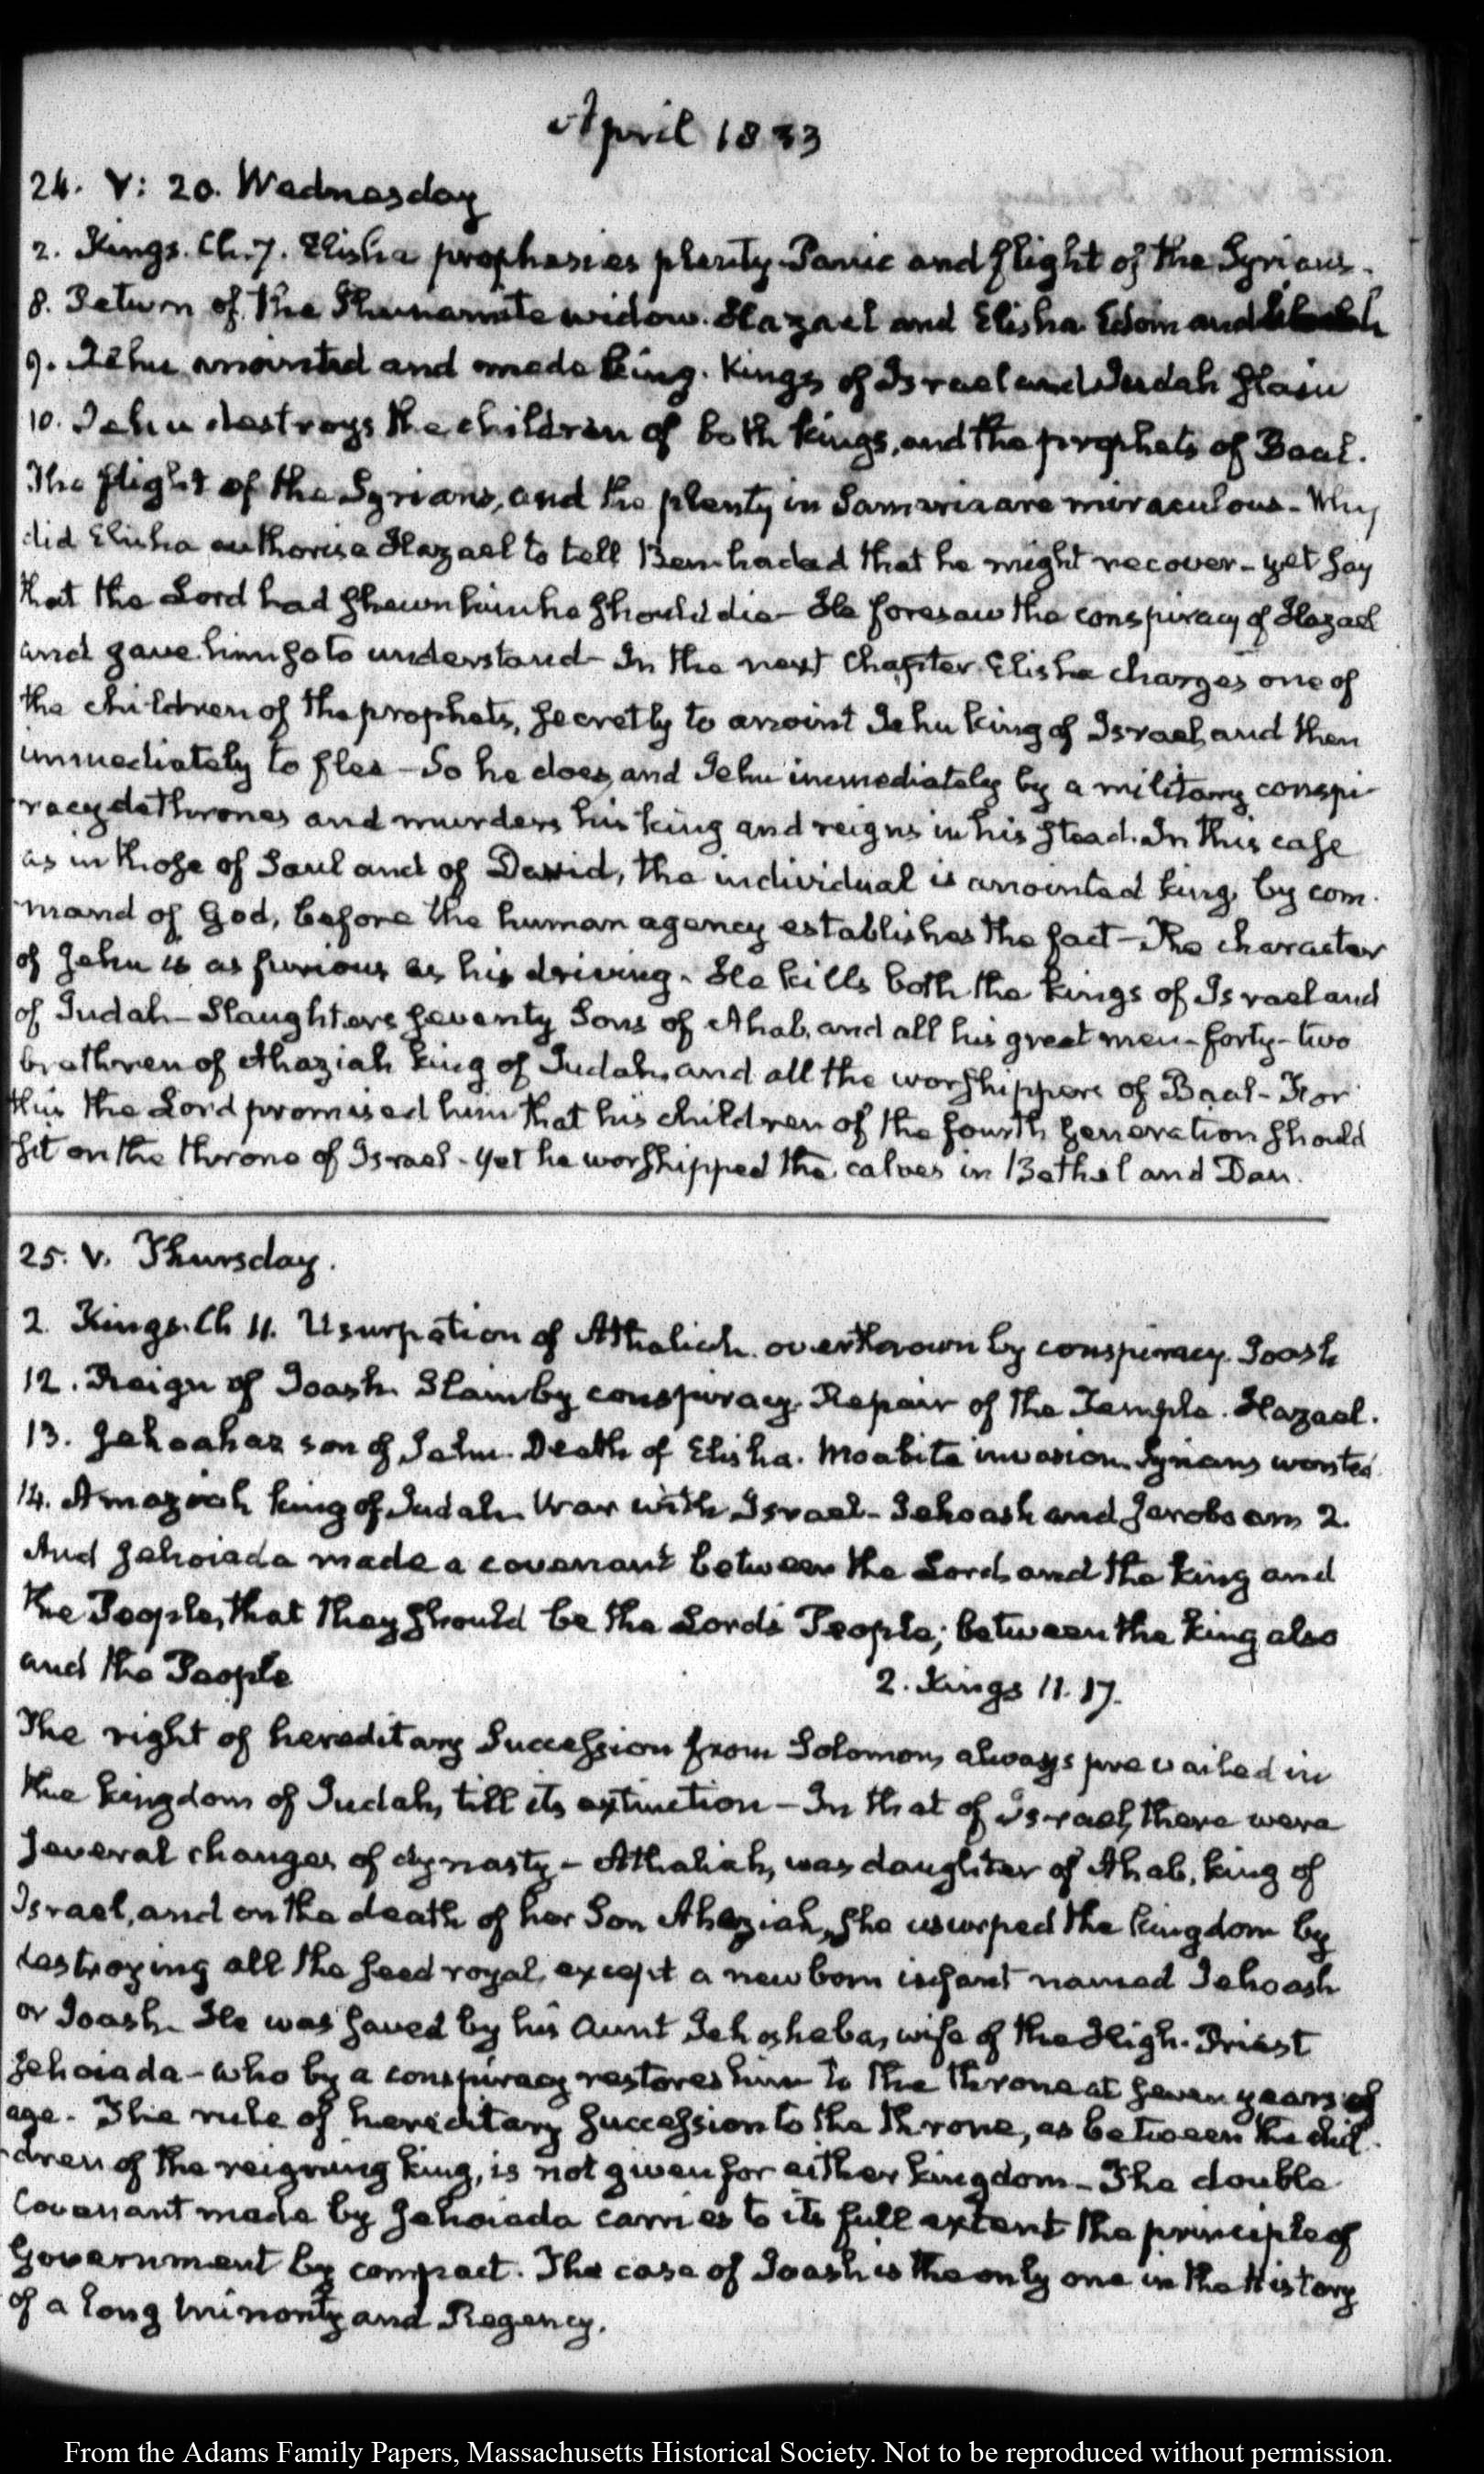 April 1833
24. V: 20. Wednesday
2. Kings. Ch. 7. Elisha prophesies plenty. Panic and flight of the Syrians.
8. Return of the Shunamite widow. Hazael and Elisha. Edom and
9. Jehu anointed and made king. Kings of Israel and Judah slain
10. Jehu destroys the children of both kings, and the prophets of Baal.
The flight of the Syrians, and the plenty in Samaria are miraculous. Why
did Elisha authorise Hazael to tell Benhadad that he might recover - yet say
that the Lord had shewn him he should die - He foresaw the conspiracy of Hazael
and gave him so to understand - In the next Chapter Elisha charges one of
the children of the prophets, secretly to anoint Jehu king of Israel, and then
immediately to flee - So he does, and Jehu immediately by a military conspi-
racy dethrones and murders his king and reigns in his stead. In this case
as in those of Saul and of David, the individual is anointed king, by com-
mand of God, before the human agency establishes the fact - The character
of Jehu is as furious as his driving. He kills both the kings of Israel and
of Judah - Slaughters seventy Sons of Ahab, and all his great men - forty-two
brethren of Ahaziah king of Judah, and all the worshippers of Baal - For
this the Lord promised him that his children of the fourth generation should
sit on the throne of Israel - yet he worshipped the calves in Bethel and Dan.
25. V. Thursday.
2. Kings. Ch 11. Usurpation of Athaliah. overthrown by conspiracy. Joash
12. Reign of Joash. Slain by conspiracy. Repair of the Temple. Hazael.
13. Jehoahaz son of Jehu. Death of Elisha. Moabite invasion. Syrians worsted
14. Amaziah king of Judah. War with Israel - Jehoash and Jeroboam 2.
And Jehoiada made a covenant between the Lord, and the king and
the People, that they should be the Lord's People; between the king also
and the People 2. Kings 11. 17.
The right of hereditary Succession from Solomon, always prevailed in
the kingdom of Judah, till its extinction - In that of Israel, there were
several changes of dynasty - Athaliah, was daughter of Ahab, king of
Israel, and on the death of her Son Ahaziah, she usurped the kingdom by
destroying all the seed royal, except a new born infant named Jehoash
or Joash. He was saved by his Aunt Jehosheba, wife of the High-Priest
Jehoiada - who by a conspiracy restores him to the throne at seven years of
age. The rule of hereditary succession to the throne, as between the chil-
dren of the reigning king, is not given for either kingdom - The double
covenant made by Jehoiada carries to its full extent the principle of
Government by compact. The case of Joash is the only one in the History
of a long minority and Regency.
From the Adams Family Papers, Massachusetts Historical Society. Not to be reproduced without permission.